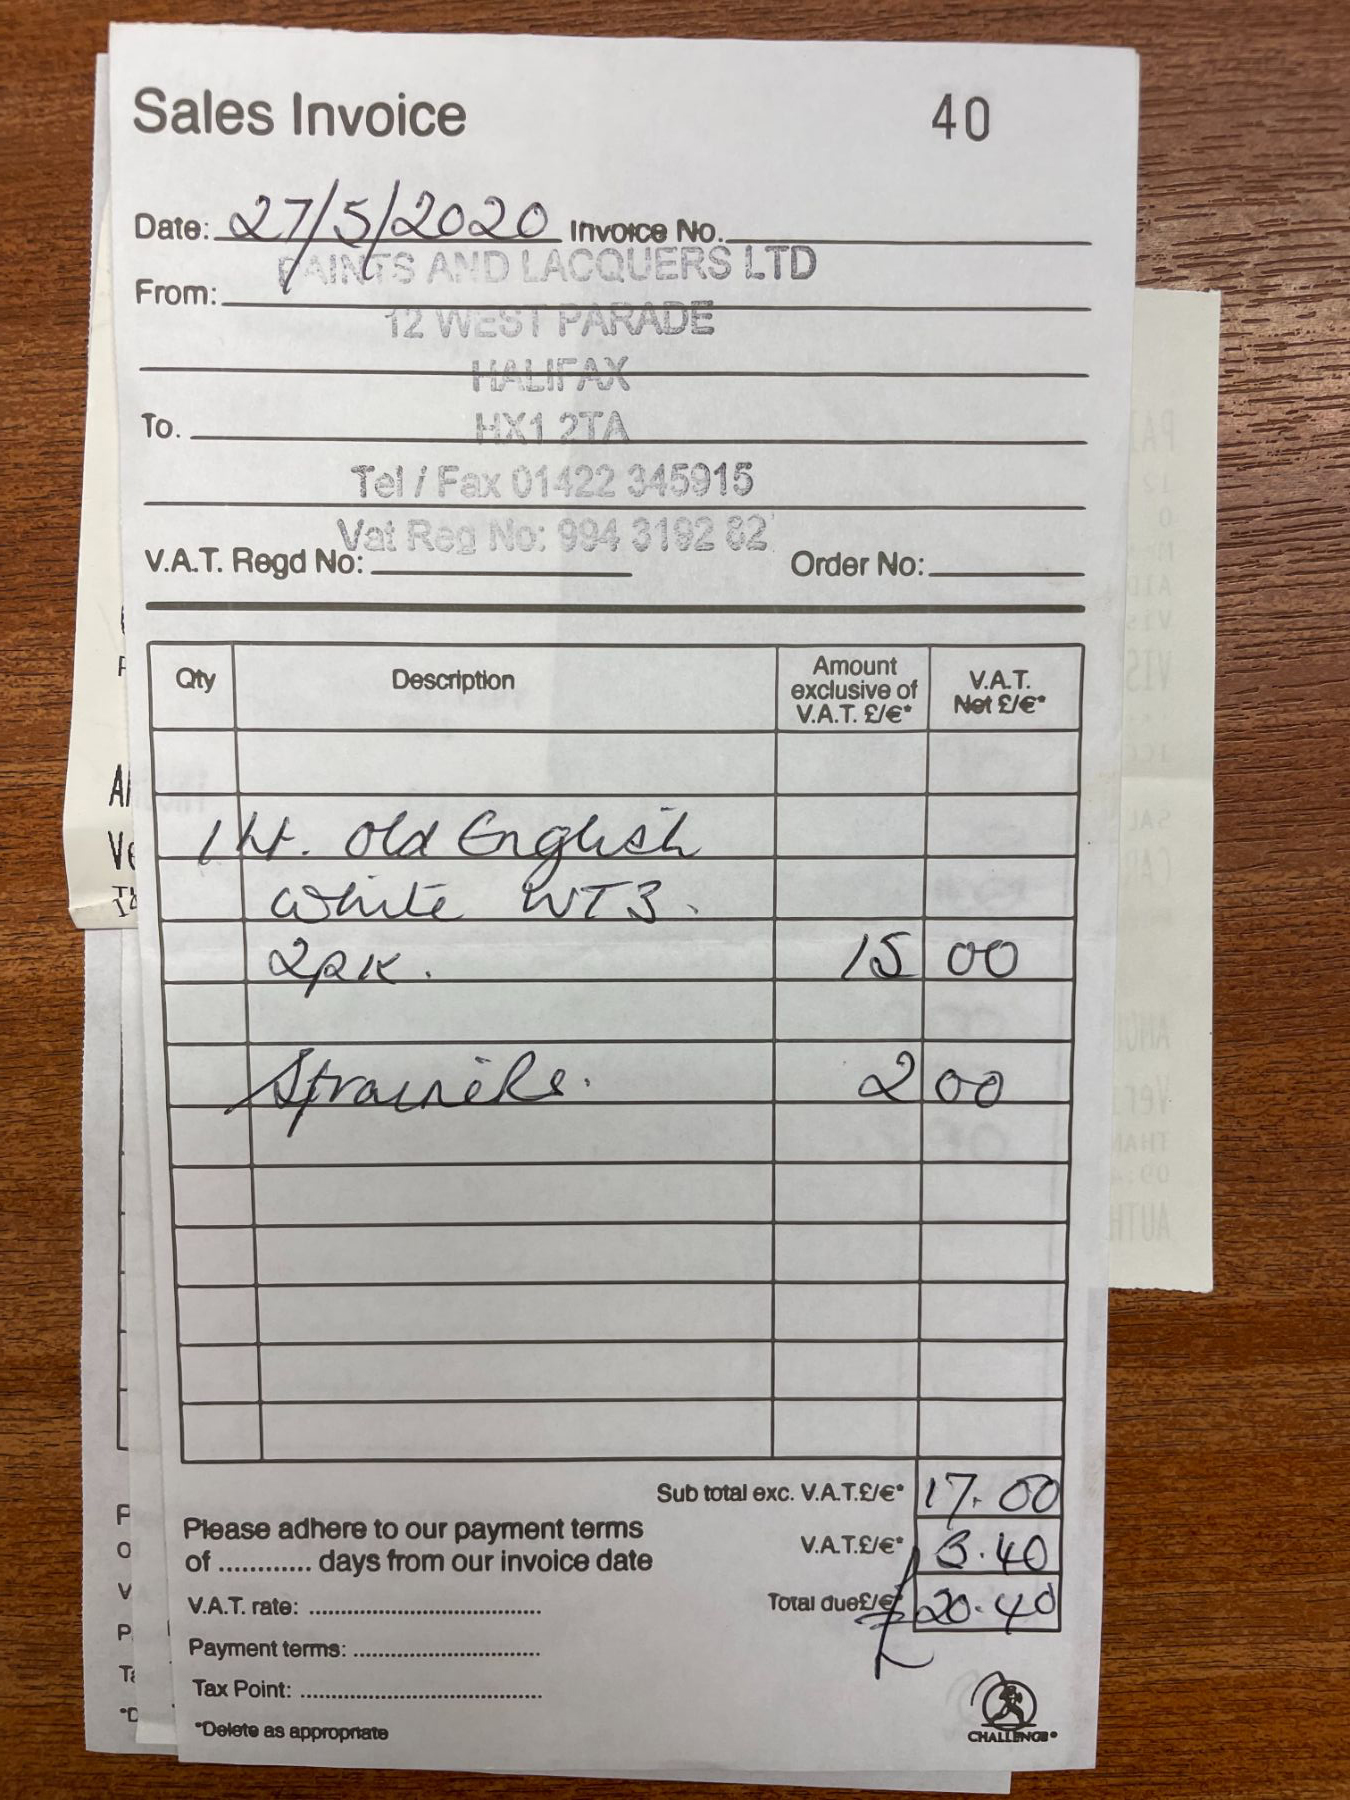 Sales Invoice 40
Date: 27/5/2020 Invoice No.
PAINTS AND LACQUERS LTD
From:
12 WEST PARADE
HALIFAX
To.
HX1 2TA
Tel / Fax 01422 345915
Vat Reg No: 994 3192 82
V.A.T. Regd No: Order No:
Qty Description Amount exclusive of V.A.T. £/€* V.A.T. Net £/€*
1 lt. Old English
White WT3.
2pk. 15 00
Strainers. 2 00
Sub total exc. V.A.T.£/€* 17.00
Please adhere to our payment terms
of ............ days from our invoice date
V.A.T.£/€* 3.40
V.A.T. rate: ..............................
Total due£/€* £20.40
Payment terms: ..............................
Tax Point: ..............................
*Delete as appropriate
CHALLENGE®